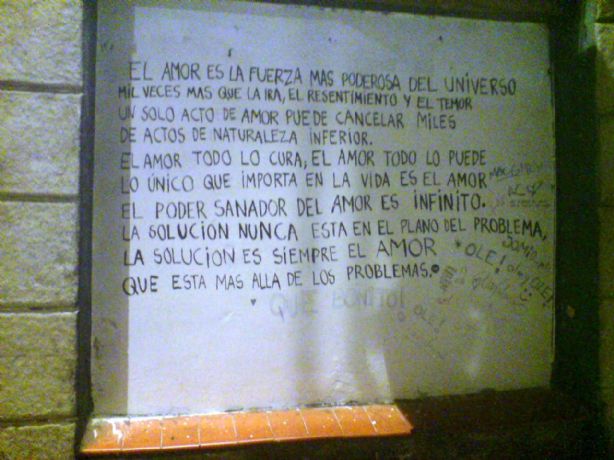 EL AMOR ES LA FUERZA MAS PODEROSA DEL UNIVERSO
MIL VECES MAS QUE LA IRA, EL RESENTIMIENTO Y EL TEMOR
UN SOLO ACTO DE AMOR PUEDE CANCELAR MILES
DE ACTOS DE NATURALEZA INFERIOR.
EL AMOR TODO LO CURA, EL AMOR TODO LO PUEDE
LO ÚNICO QUE IMPORTA EN LA VIDA ES EL AMOR
EL PODER SANADOR DEL AMOR ES INFINITO.
LA SOLUCION NUNCA ESTA EN EL PLANO DEL PROBLEMA,
LA SOLUCION ES SIEMPRE EL AMOR
QUE ESTA MAS ALLA DE LOS PROBLEMAS.
OLE!
OLE!
QUE BONITO!
OLE!